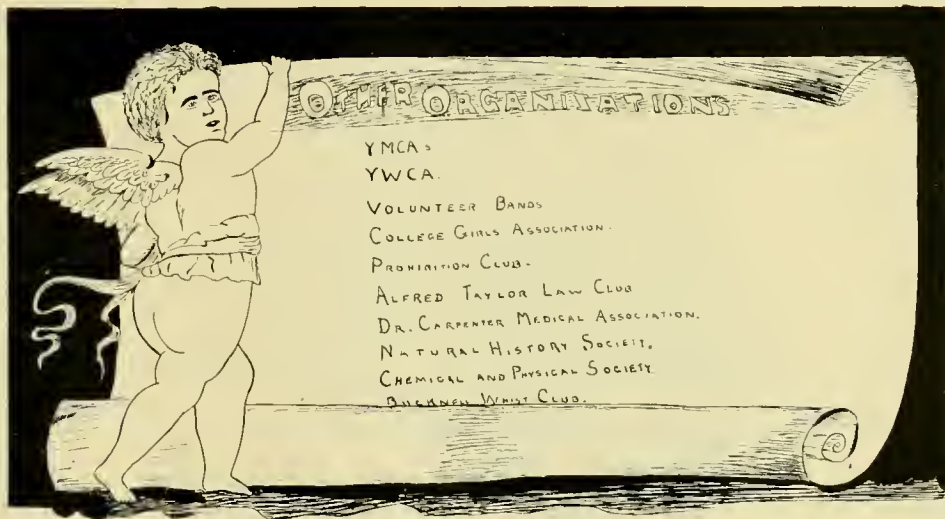 OTHER ORGANIZATIONS
YMCAs
YWCA.
VOLUNTEER BANDS
COLLEGE GIRLS ASSOCIATION.
PROHIBITION CLUB.
ALFRED TAYLOR LAW CLUB
DR. CARPENTER MEDICAL ASSOCIATION.
NATURAL HISTORY SOCIETY.
CHEMICAL AND PHYSICAL SOCIETY
BUCKNELL WHIST CLUB.